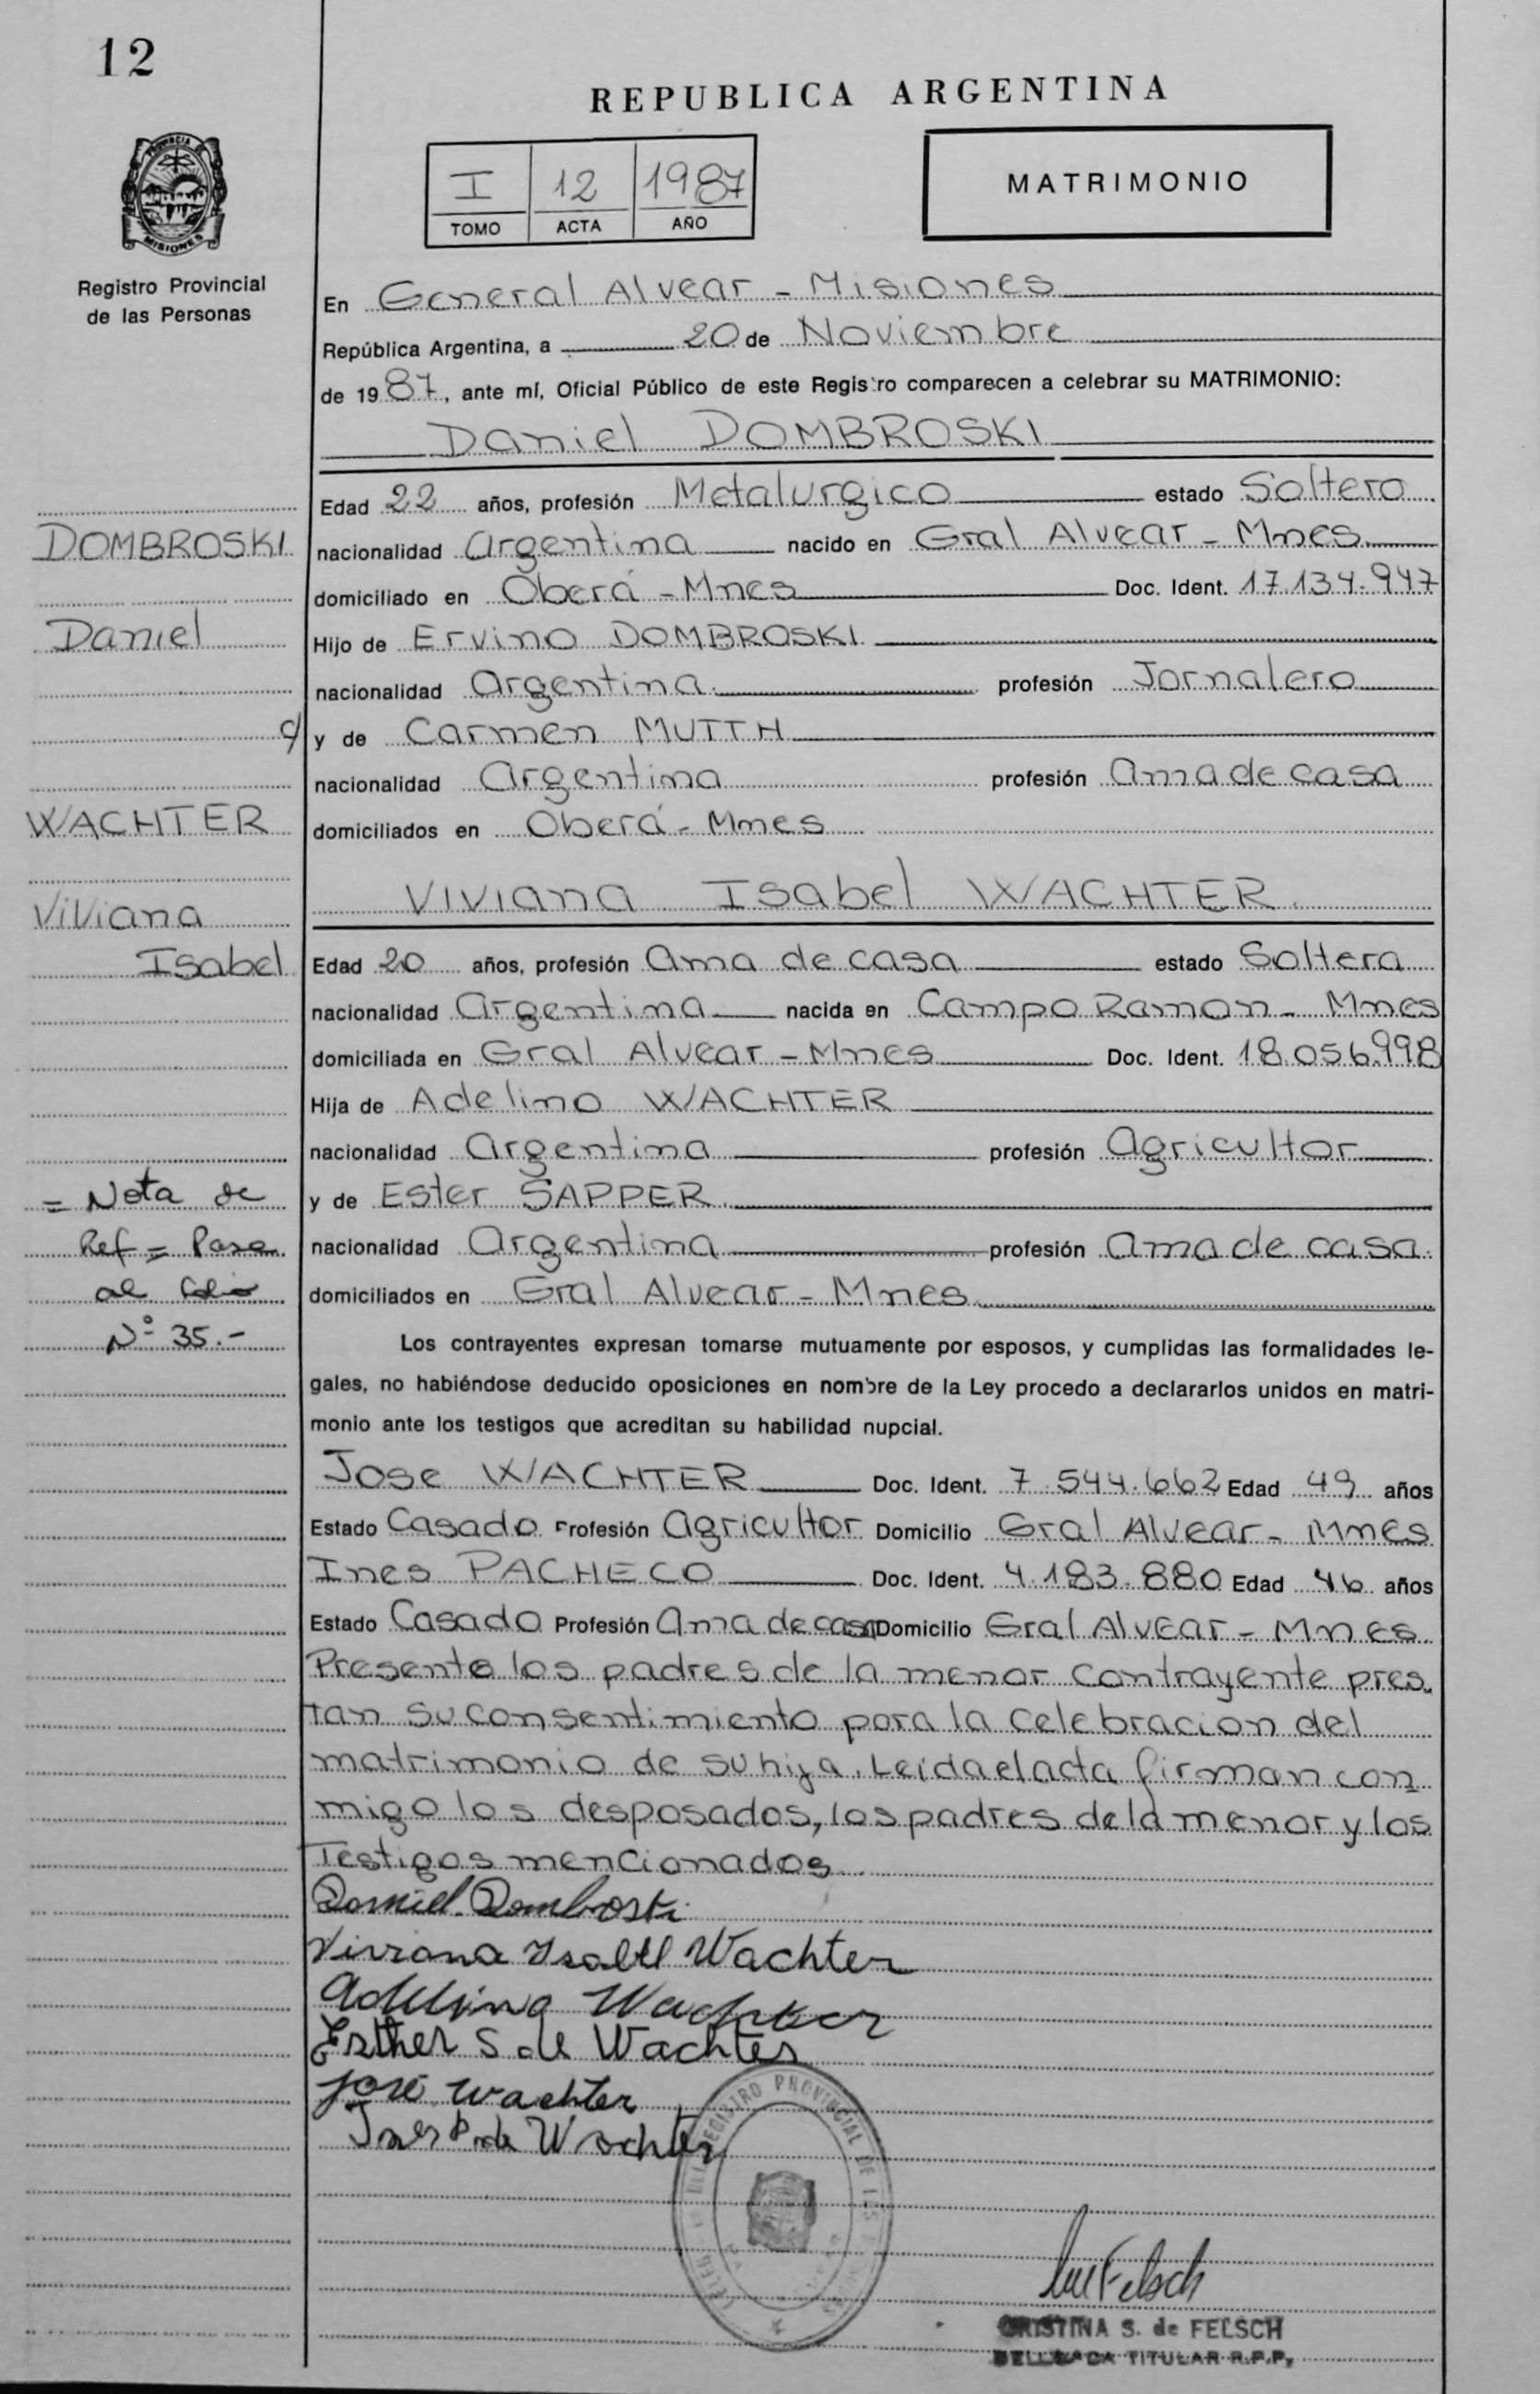 12
REPUBLICA ARGENTINA
PROVINCIA DE
MISIONES
I 12 1987
TOMO ACTA AÑO
MATRIMONIO
Registro Provincial
de las Personas
En General Alvear - Misiones
República Argentina, a 20 de Noviembre
de 1987, ante mí, Oficial Público de este Registro comparecen a celebrar su MATRIMONIO:
Daniel DOMBROSKI
Edad 22 años, profesión Metalurgico estado Soltero
DOMBROSKI
nacionalidad Argentina nacido en Gral Alvear - Mnes
domiciliado en Oberá - Mnes Doc. Ident. 17.134.947
Daniel
Hijo de Ervino DOMBROSKI
nacionalidad Argentina profesión Jornalero
c/
y de Carmen MUTTH
nacionalidad Argentina profesión Ama de casa
WACHTER
domiciliados en Oberá - Mnes
Viviana
Viviana Isabel WACHTER
Isabel
Edad 20 años, profesión Ama de casa estado Soltera
nacionalidad Argentina nacida en Campo Ramon - Mnes
domiciliada en Gral Alvear - Mnes Doc. Ident. 18.056.998
Hija de Adelino WACHTER
nacionalidad Argentina profesión Agricultor
= Nota de
y de Ester SAPPER
Ref = Pase
nacionalidad Argentina profesión Ama de casa
al folio
domiciliados en Gral Alvear - Mnes
Nº 35.-
Los contrayentes expresan tomarse mutuamente por esposos, y cumplidas las formalidades le-
gales, no habiéndose deducido oposiciones en nombre de la Ley procedo a declararlos unidos en matri-
monio ante los testigos que acreditan su habilidad nupcial.
Jose WACHTER Doc. Ident. 7.544.662 Edad 49 años
Estado Casado Profesión Agricultor Domicilio Gral Alvear - Mnes
Ines PACHECO Doc. Ident. 4.183.880 Edad 46 años
Estado Casado Profesión Ama de casa Domicilio Gral Alvear - Mnes
Presente los padres de la menor contrayente pres-
tan su consentimiento para la celebracion del
matrimonio de su hija. Leida el acta firman con
migo los desposados, los padres de la menor y los
Testigos mencionados
Daniel Dombroski
Viviana Isabel Wachter
Adelino Wachter
Esther S de Wachter
José Wachter
Ines P. de Wachter
REGISTRO PROVINCIAL DE LAS
CRISTINA S. de FELSCH
DELEGADA TITULAR R.P.P.